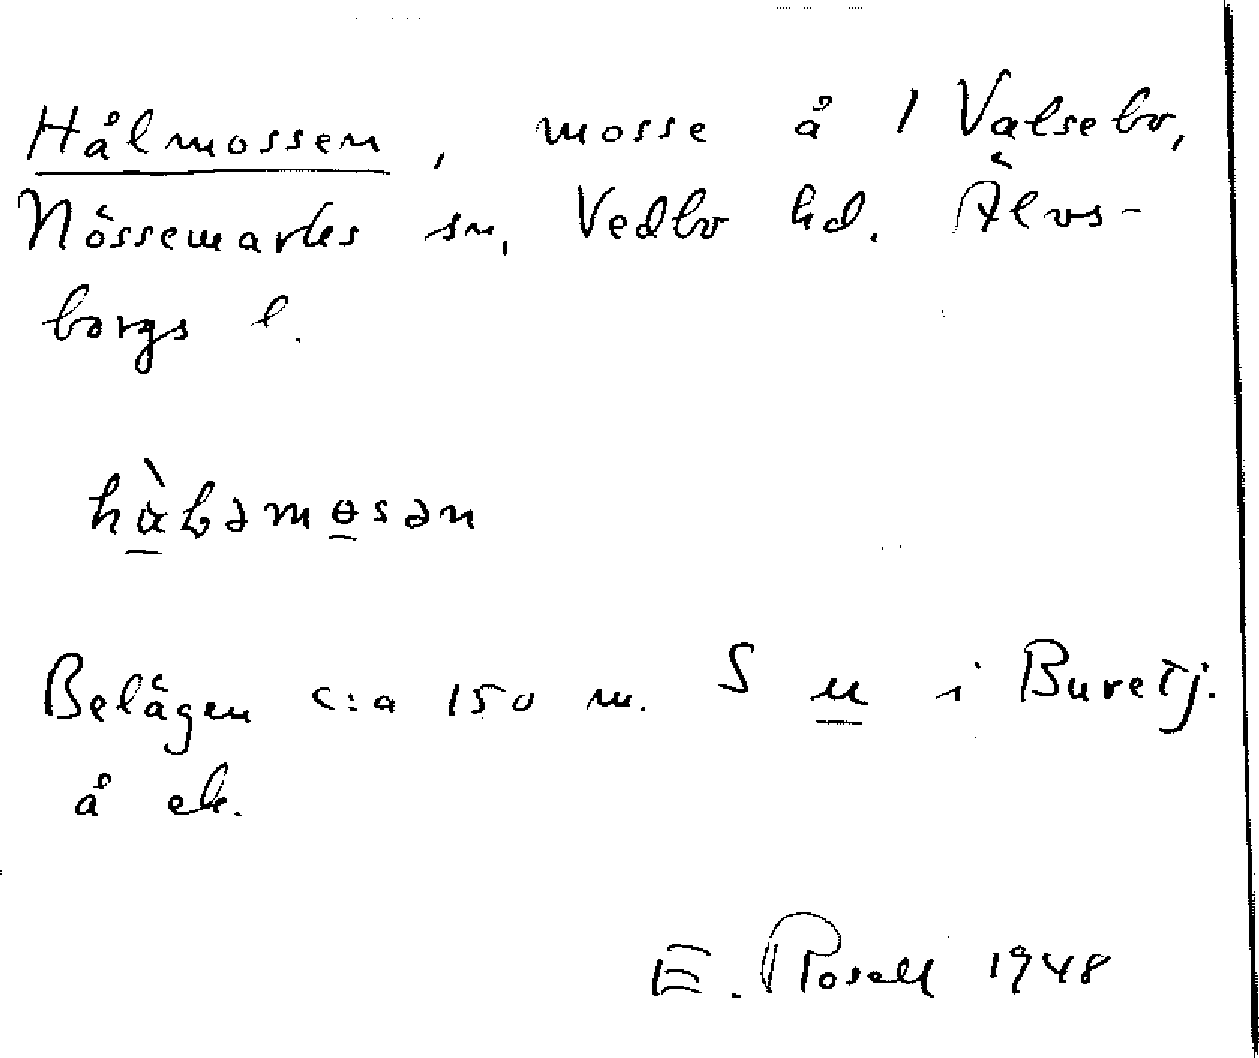 Hålmossen, mosse å 1 Valsebo,
Nössemarks sn, Vedbo hd. Älvs-
borgs l.
hàɫəmɵsən
Belägen c:a 150 m. S u i Buretj.
å ek.
E. Rosell 1948